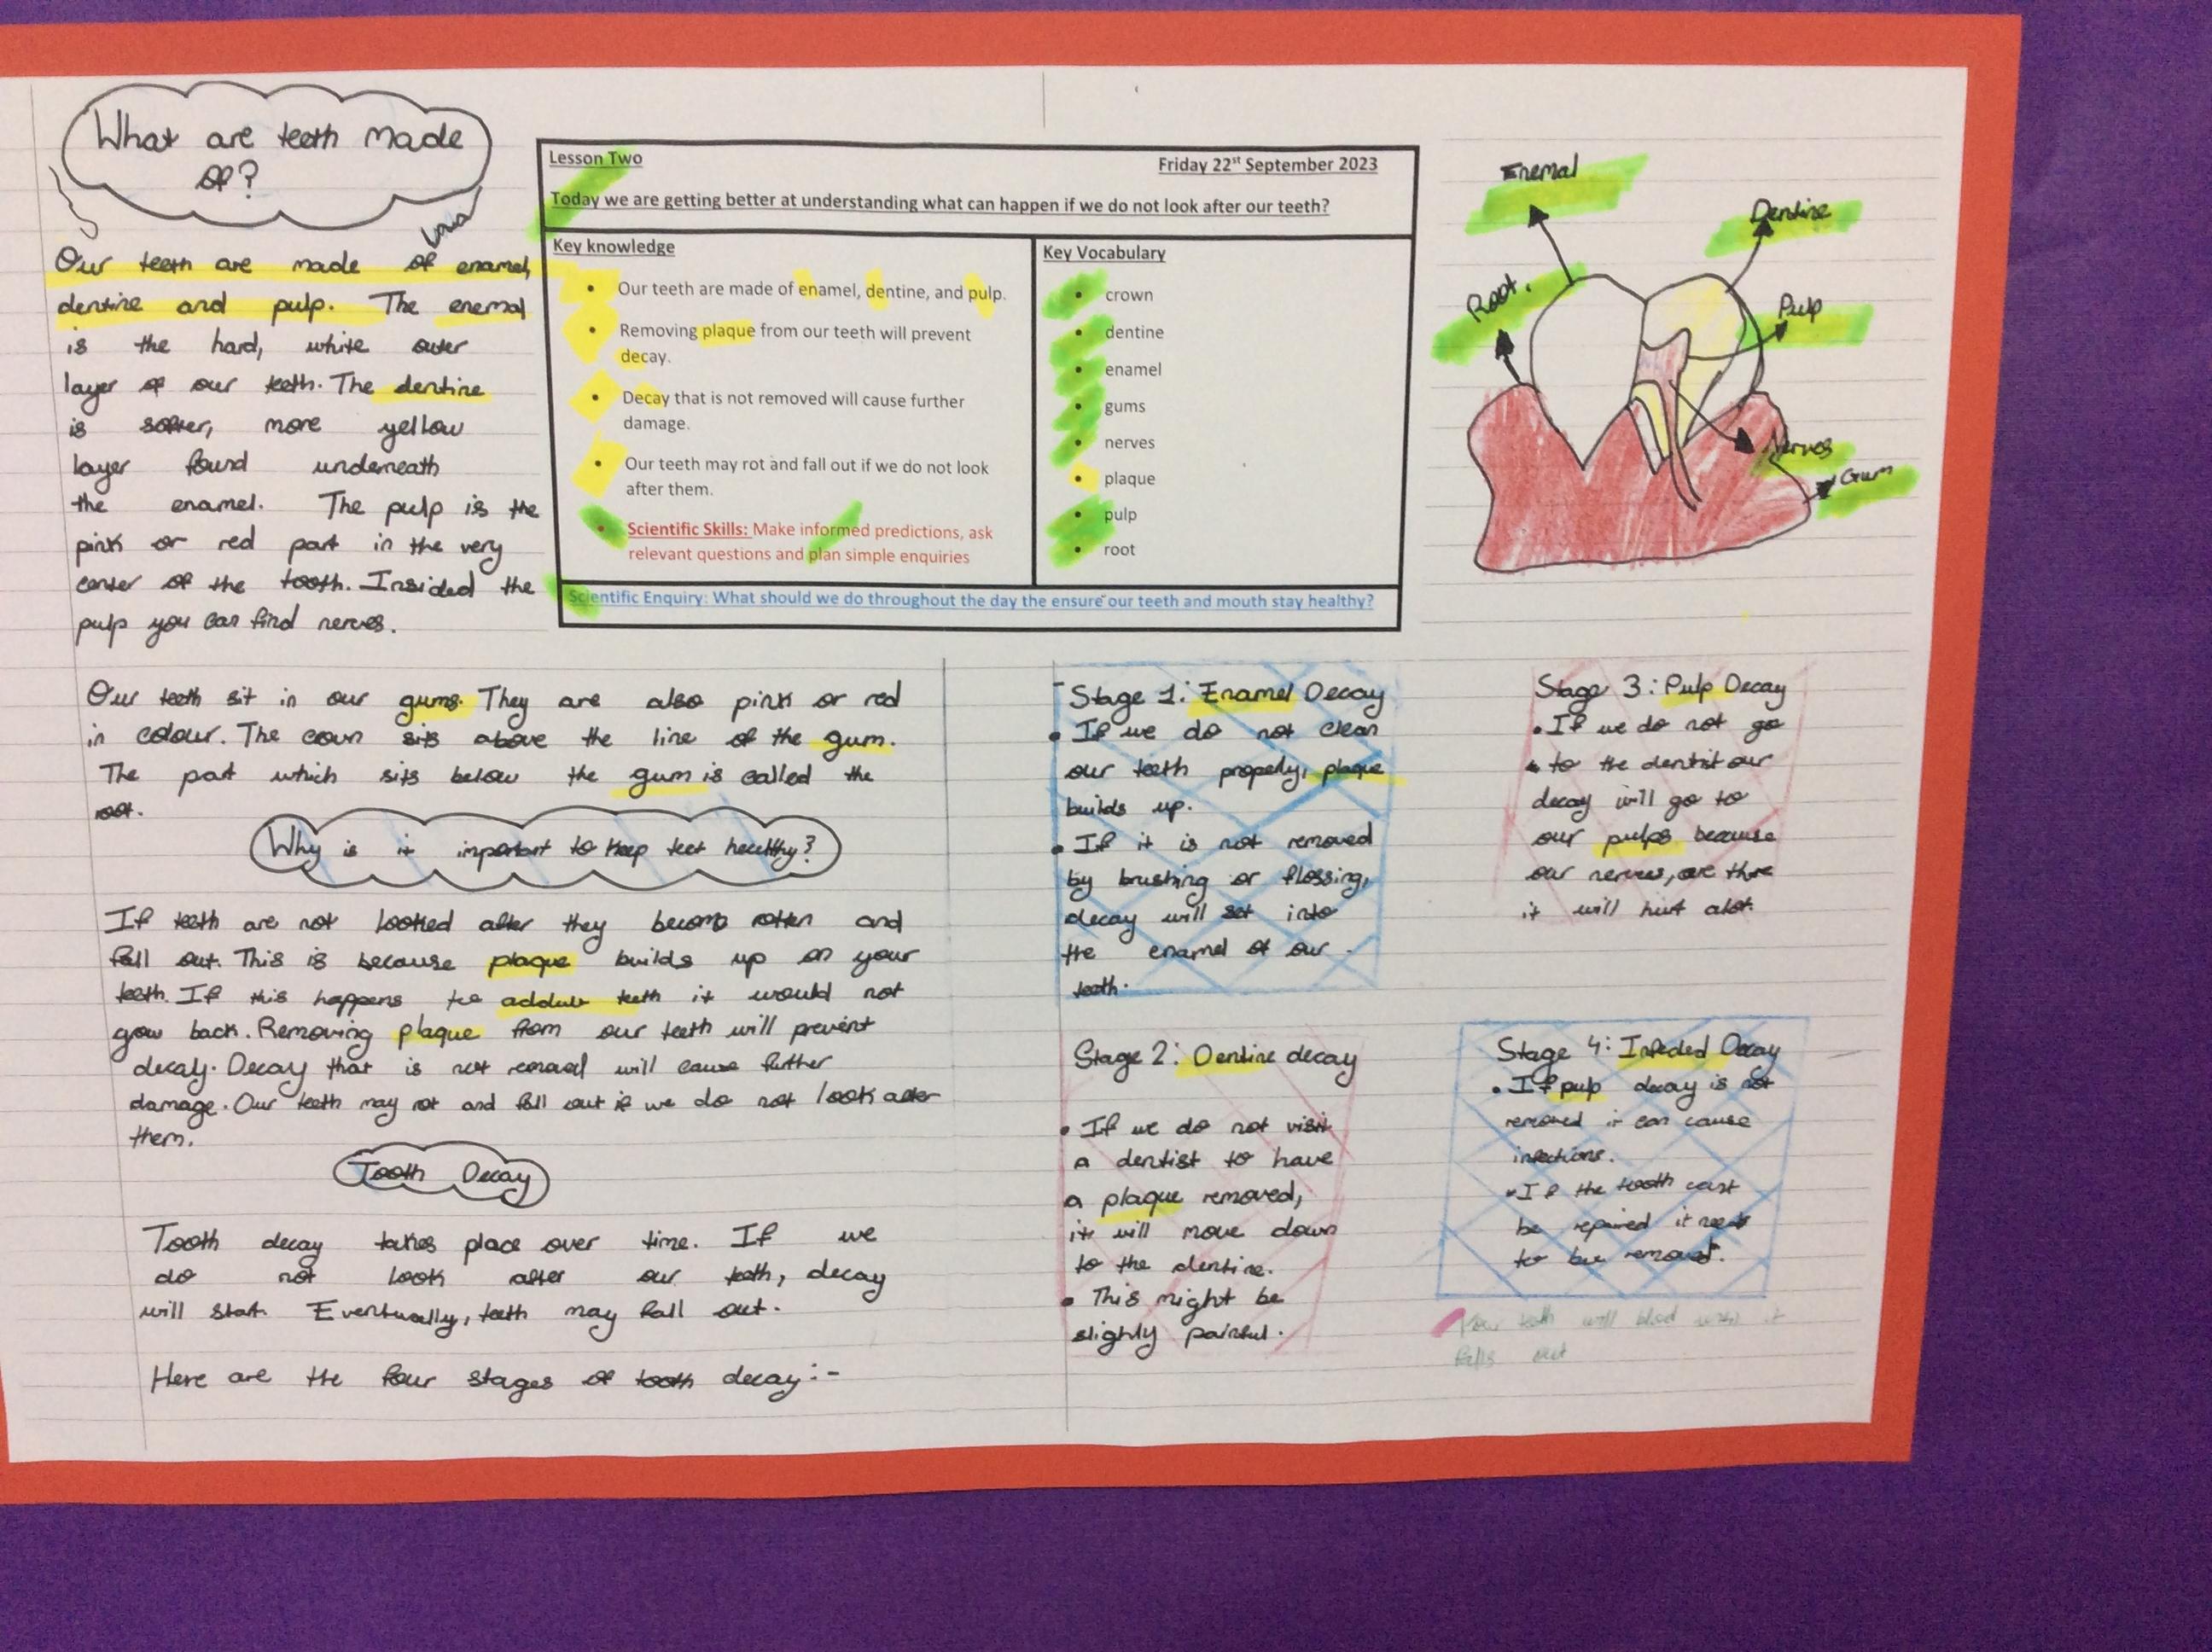 What are teeth made
of?
Our teeth are made of enamel,
dentine and pulp. The enemal
is the hard, white outer
layer of our teeth. The dentine
is softer, more yellow
layer found underneath
the enamel. The pulp is the
pink or red part in the very
center of the tooth. Insided the
pulp you can find nerves.
Lesson Two
Friday 22st September 2023
Today we are getting better at understanding what can happen if we do not look after our teeth?
Key knowledge
• Our teeth are made of enamel, dentine, and pulp.
• Removing plaque from our teeth will prevent
decay.
• Decay that is not removed will cause further
damage.
• Our teeth may rot and fall out if we do not look
after them.
• Scientific Skills: Make informed predictions, ask
relevant questions and plan simple enquiries
Key Vocabulary
• crown
• dentine
• enamel
• gums
• nerves
• plaque
• pulp
• root
Scientific Enquiry: What should we do throughout the day the ensure our teeth and mouth stay healthy?
Enemal
Dentine
Root.
Pulp
Nerves
Gum
Our teeth sit in our gums. They are also pink or red
in colour. The crown sits above the line of the gum.
The part which sits below the gum is called the
root.
Why is it important to keep teet healthy?
If teeth are not looked after they become rotten and
fall out. This is because plaque builds up on your
teeth. If this happens to addult teeth it would not
grow back. Removing plaque from our teeth will prevent
decay. Decay that is not removed will cause further
damage. Our teeth may rot and fall out if we do not look after
them.
Tooth Decay
Tooth decay takes place over time. If we
do not look after our teeth, decay
will start. Eventually, teeth may fall out.
Here are the four stages of tooth decay:-
Stage 1: Enamel Decay
• If we do not clean
our teeth properly, plaque
builds up.
• If it is not removed
by brushing or flossing,
decay will set into
the enamel of our
teeth.
Stage 2: Dentine decay
• If we do not visit
a dentist to have
a plaque removed,
it will move down
to the dentine.
• This might be
slightly painful.
Stage 3: Pulp Decay
• If we do not go
to the dentist our
decay will go to
our pulps because
our nerves, are thre
it will hurt alot.
Stage 4: Infected Decay
• If pulp decay is not
removed it can cause
infections.
• If the tooth cant
be repaired it needs
to be removed.
Your teeth will blead until it
falls out